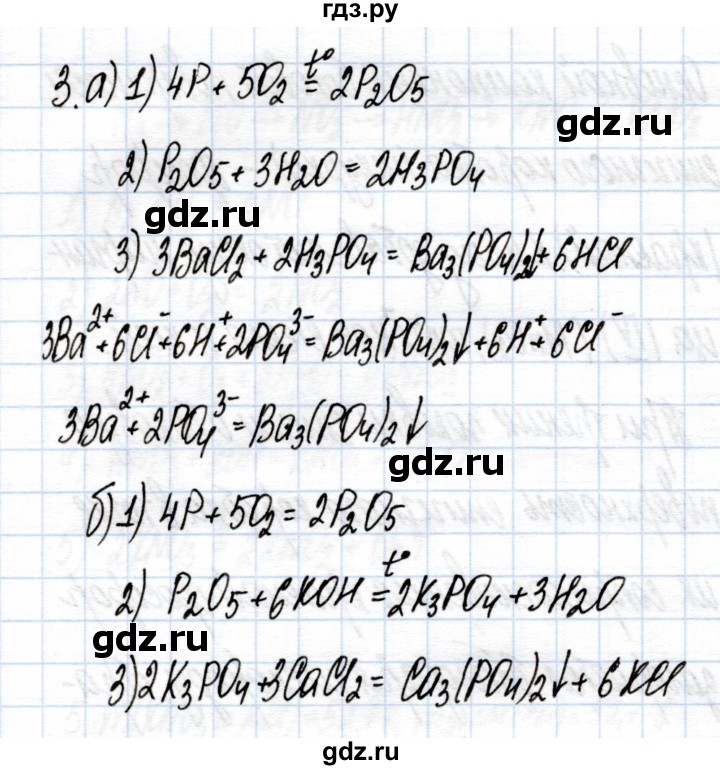 гдз.ру
3. а) 1) 4P + 5O₂ =ᵗ° 2P₂O₅
gdz.ru
2) P₂O₅ + 3H₂O = 2H₃PO₄
gdz.ru
3) 3BaCl₂ + 2H₃PO₄ = Ba₃(PO₄)₂↓ + 6HCl
3Ba²⁺ + 6Cl⁻ + 6H⁺ + 2PO₄³⁻ = Ba₃(PO₄)₂↓ + 6H⁺ + 6Cl⁻
3Ba²⁺ + 2PO₄³⁻ = Ba₃(PO₄)₂↓
gdz.ru
б) 1) 4P + 5O₂ = 2P₂O₅
2) P₂O₅ + 6KOH =ᵗ° 2K₃PO₄ + 3H₂O
gdz.ru
3) 2K₃PO₄ + 3CaCl₂ = Ca₃(PO₄)₂↓ + 6KCl
gdz.ru